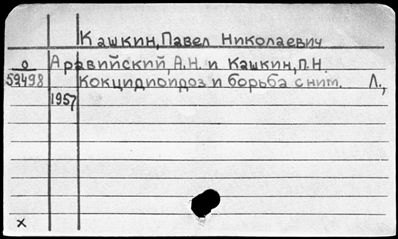 Кашкин, Павел Николаевич
о Аравийский, А.Н. и Кашкин, П.Н.
59498 Кокцидиоидоз и борьба с ним. Л.,
1957
х